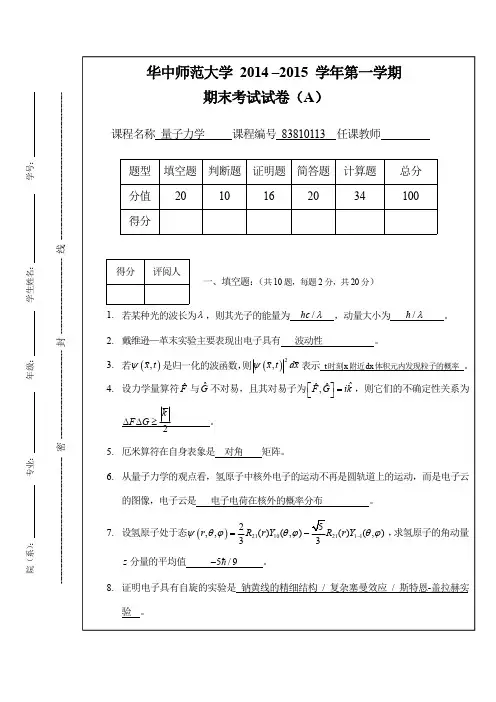 华中师范大学 2014 –2015 学年第一学期
期末考试试卷（A）
课程名称 量子力学 课程编号 83810113 任课教师
题型 填空题 判断题 证明题 简答题 计算题 总分
分值 20 10 16 20 34 100
得分
得分 评阅人
一、填空题：（共10题，每题2分，共20分）
1. 若某种光的波长为λ，则其光子的能量为 hc/λ ，动量大小为 h/λ 。
2. 戴维逊—革末实验主要表现出电子具有 波动性 。
3. 若ψ(x,t)是归一化的波函数，则|ψ(x,t)|²dx表示 t时刻x附近dx体积元内发现粒子的概率 。
4. 设力学量算符F̂与Ĝ不对易，且其对易子为[F̂,Ĝ]=ik̂，则它们的不确定性关系为
ΔFΔG≥|k̄|/2 。
5. 厄米算符在自身表象是 对角 矩阵。
6. 从量子力学的观点看，氢原子中核外电子的运动不再是圆轨道上的运动，而是电子云
的图像，电子云是 电子电荷在核外的概率分布 。
7. 设氢原子处于态ψ(r,θ,φ)=2/3R₂₁(r)Y₁₀(θ,φ)−√5/3R₂₁(r)Y₁₋₁(θ,φ)，求氢原子的角动量
z分量的平均值 −5ħ/9 。
8. 证明电子具有自旋的实验是 钠黄线的精细结构 / 复杂塞曼效应 / 斯特恩-盖拉赫实
验 。
院（系）： 专业： 年级： 学生姓名： 学号：
密 封 线